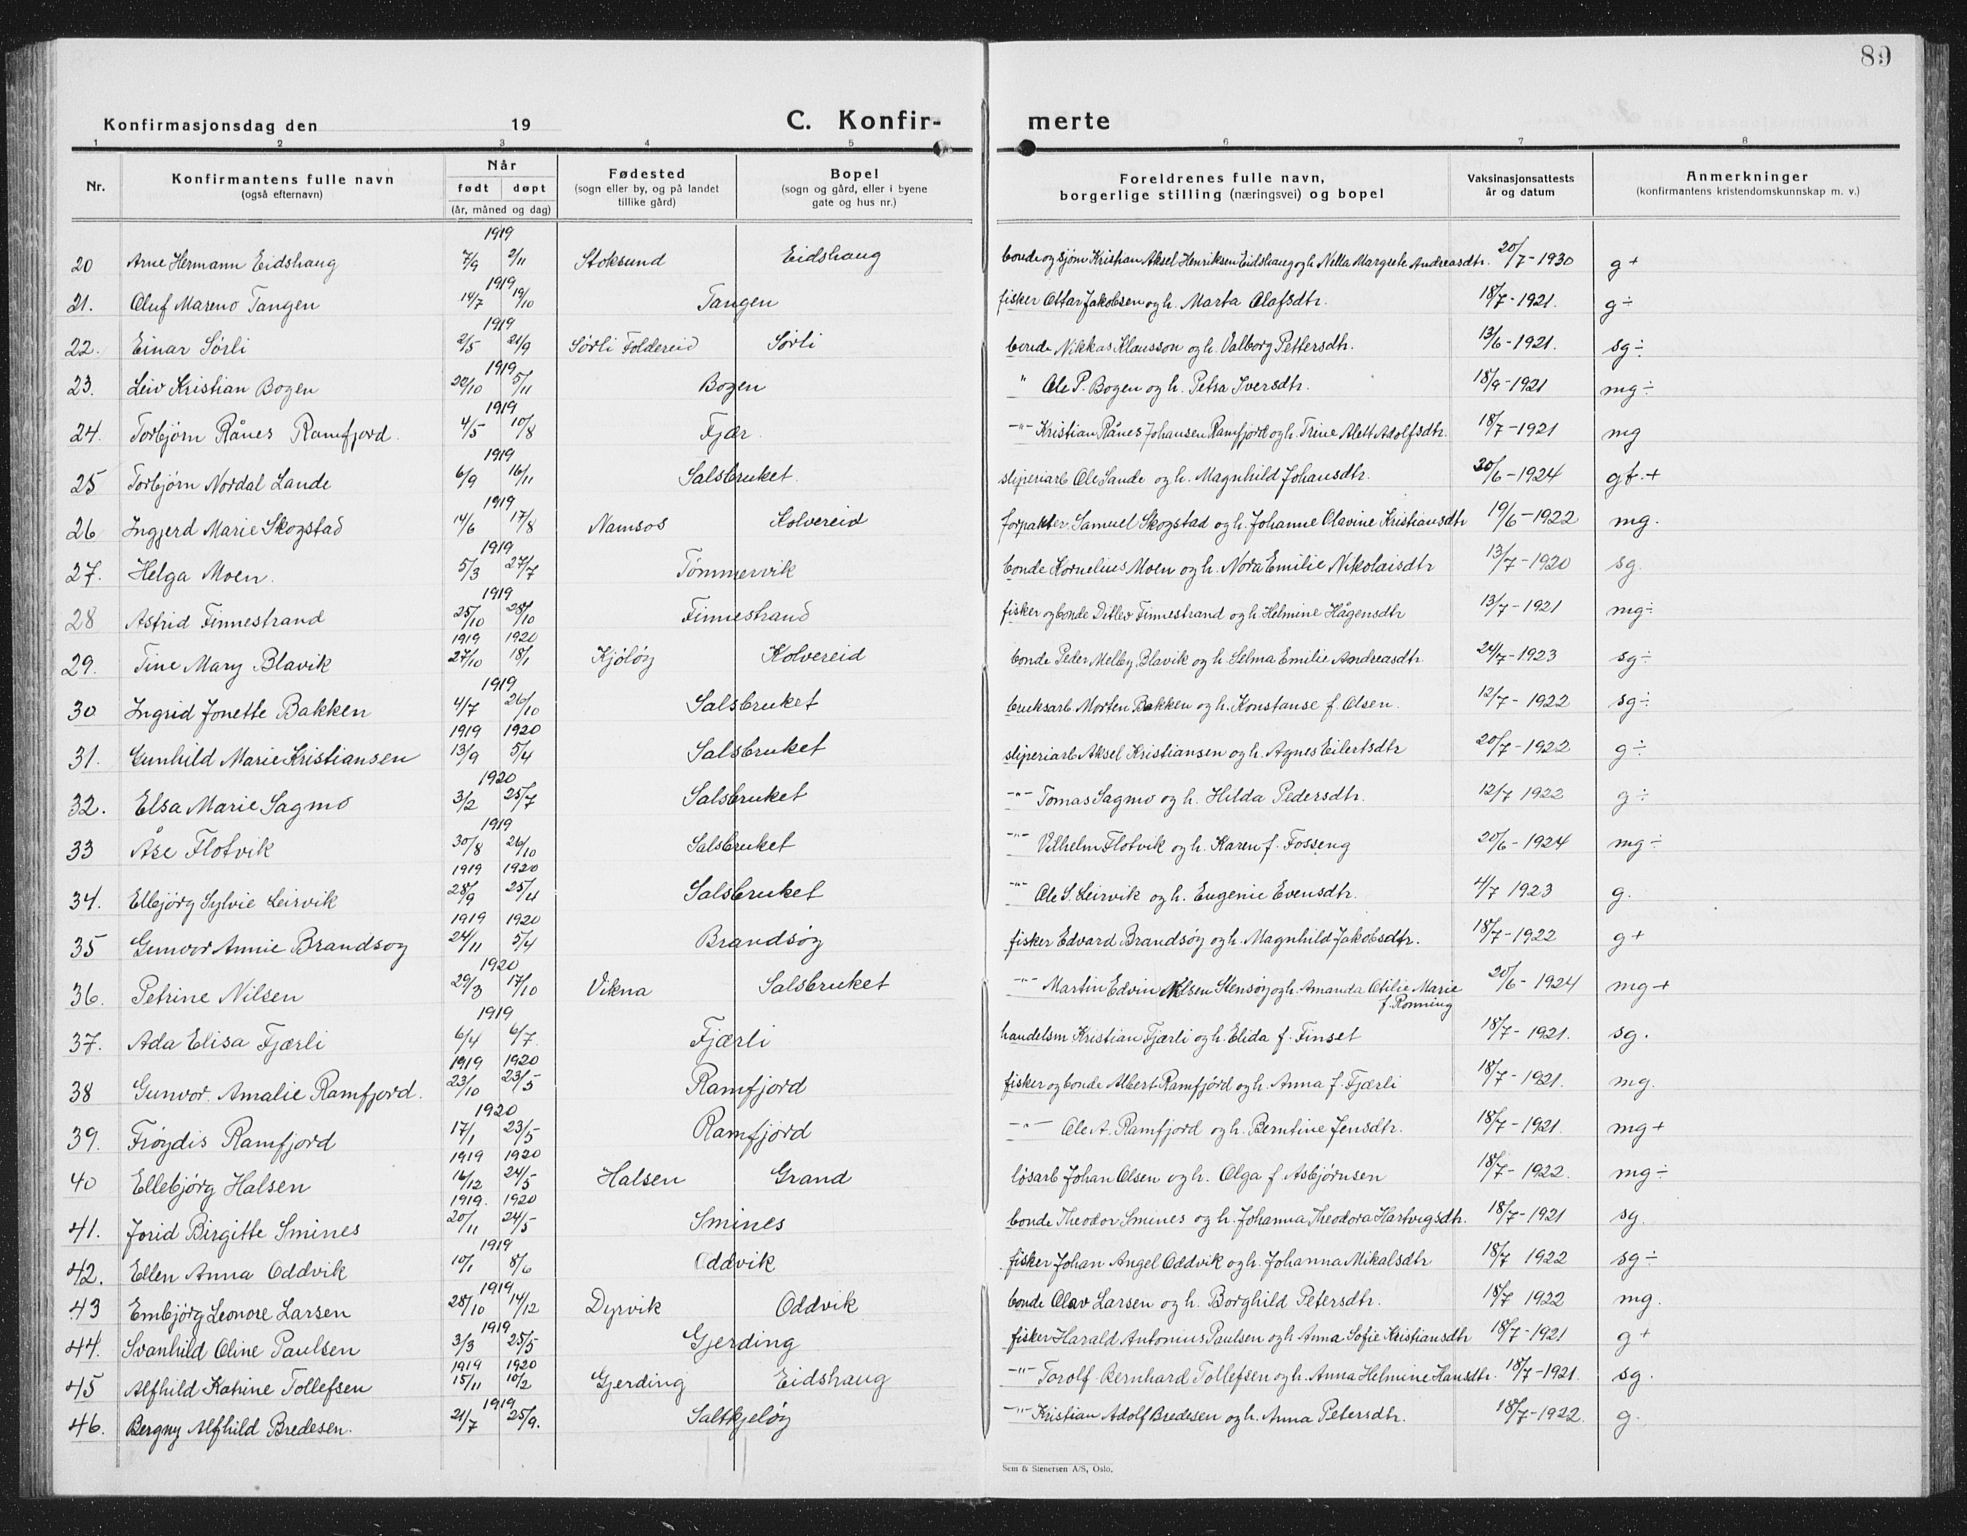 89
Konfirmasjonsdag den 19 C. Konfir- merte
1 2 3 4 5 6 7 8
Nr. Konfirmantens fulle navn (også efternavn) Når født døpt (år, måned og dag) Fødested (sogn eller by, og på landet tillike gård) Bopel (sogn og gård, eller i byene gate og hus nr.) Foreldrenes fulle navn, borgerlige stilling (næringsvei) og bopel Vaksinasjonsattests år og datum Anmerkninger (konfirmantens kristendomskunnskap m. v.)
1919
20 Arne Hermann Eidshaug 7/9 2/11 Stoksund Eidshaug bonde og sjøm Kristian Aksel Henriksen Eidshaug og h. Nella Margrete Andreasdtr. 20/7-1930 g+
1919
21. Oluf Mareno Tangen 14/7 19/10 Tangen fisker Ottar Jakobsen og h. Marta Olafsdtr. 18/7-1921. g÷
1919
22. Einar Sørli 2/5 21/9 Sørli Foldereid Sørli bonde Nikkas Klausson og h. Valborg Pettersdtr. 13/6-1921. sg÷
1919
23. Leiv Kristian Bogen 22/10 5/11 Bogen " Ole P. Bogen og h. Petra Iversdtr. 18/9-1921 mg÷
1919
24. Torbjørn Rånes Ramfjord. 4/5 10/8 Fjær. -"- Kristian Rånes Johansen Ramfjord og h. Trine Alett Adolfsdtr. 18/7-1921 mg
1919
25 Torbjørn Nordal Sande 6/9 16/11 Salsbruket. sliperiarb Ole Sande og h. Magnhild Johansdtr. 20/6-1924 gt.+
1919
26 Ingjerd Marie Skogstad 14/6 17/8 Namsos Kolvereid forpakter Samuel Skogstad og h. Johanne Olavine Kristiansdtr 19/6-1922 mg.
1919
27. Helga Moen. 5/3 27/7 Tømmervik bonde Kornelius Moen og h. Nora Emilie Nikolaisdtr 13/7-1920 sg.
1919
28 Astrid Finnestrand 25/10 28/10 Finnestrand fisker og bonde Ditlev Finnestrand og h. Helmine Hågensdtr 13/7-1921 mg÷
1919 1920
29. Tine Mary Blavik 27/10 18/1 Kjøløy Kolvereid bonde Peder Melby Blavik og h. Selma Emilie Andreasdtr. 24/7-1923 sg÷
1919
30 Ingrid Jonette Bakken 4/7 26/10 Salsbruket bruksarb Morten Bakken og h. Konstanse f. Olsen. 12/7-1922 sg÷
1919 1920
31. Gunhild Marie Kristiansen 13/9 5/4 Salsbruket sliperiarb Aksel Kristiansen og h. Agnes Eilertsdtr 20/7-1922 g÷
1920
32. Elsa Marie Sagmo 3/2 25/7 Salsbruket -"- Tomas Sagmo og h. Hilda Pedersdtr. 12/7 1922 g÷
1919
33 Åse Flotvik 30/8 26/10 Salsbruket -"- Vilhelm Flotvik og h. Karen f. Fosseng 20/6-1924 mg÷
1919 1920
34. Elbjørg Sylvie Leirvik 28/9 25/4 Salsbruket -"- Ole S. Leirvik og h. Eugenie Evensdtr. 4/7 1923 g.
1919 1920
35 Gunvor Annie Brandsøy 24/11 5/4 Brandsøy fisker Edvard Brandsøy og h. Magnhild Jakobsdtr. 18/7-1922 g+
1920
36. Petrine Nilsen 29/3 17/10 Vikna Salsbruket -"- Martin Edvin Nilsen Stensøy og h. Amanda Otilie Marie f. Rønning 20/6-1924 mg+
1919
37. Ada Elisa Fjærli 6/4 6/7. Fjærli handelsm Kristian Fjærli og h. Elida f. Finset 18/7-1921. sg.
1919 1920
38 Gunvor. Amalie Ramfjord. 23/10 23/5 Ramfjord fisker og bonde Albert Ramfjord og h. Anna f. Fjærli 18/7-1921. mg.
1920
39. Frøydis Ramfjord 17/1 23/5 Ramfjord -"- Ole A. Ramfjord og h. Berntine Jensdtr. 18/7-1921. mg+
1919 1920
40 Ellebjørg Halsen 16/12 24/5 Halsen Grand løsarb Johan Olsen og h. Olga f Asbjørnsen 18/7-1922. mg÷
1919. 1920
41. Jorid Birgitte Smines 20/11 24/5 Smines bonde Theodor Smines og h. Johanna Theodora Hartvigsdtr. 18/7-1921 sg.
1919
42. Ellen Anna Oddvik 10/1 8/6 Oddvik fisker Johan Angel Oddvik og h. Johanna Mikalsdtr 18/7 1922 sg÷
1919
43 Embjørg Leonore Larsen 28/10 14/12 Dyrvik Oddvik bonde Olav Larsen og h. Borghild Petersdtr. 18/7 1922 mg.
1919
44. Svanhild Oline Paulsen 3/3 25/5 Gjerding fisker Harald Antonius Paulsen og h. Anna Sofie Kristiansdtr 18/7-1921 g+
1919 1920
45 Alfhild Katrine Tollefsen 15/11 10/2 Gjerding Eidshaug -"- Torolf Bernhard Tollefsen og h. Anna Helmine Hansdtr. 18/7-1921. sg.
1919
46. Bergny Alfhild Bredesen. 21/7 25/9. Saltkjeløy -"- Kristian Adolf Bredesen og h. Anna Petersdtr. 18/7-1922. g.
Sem & Stenersen A/S, Oslo.